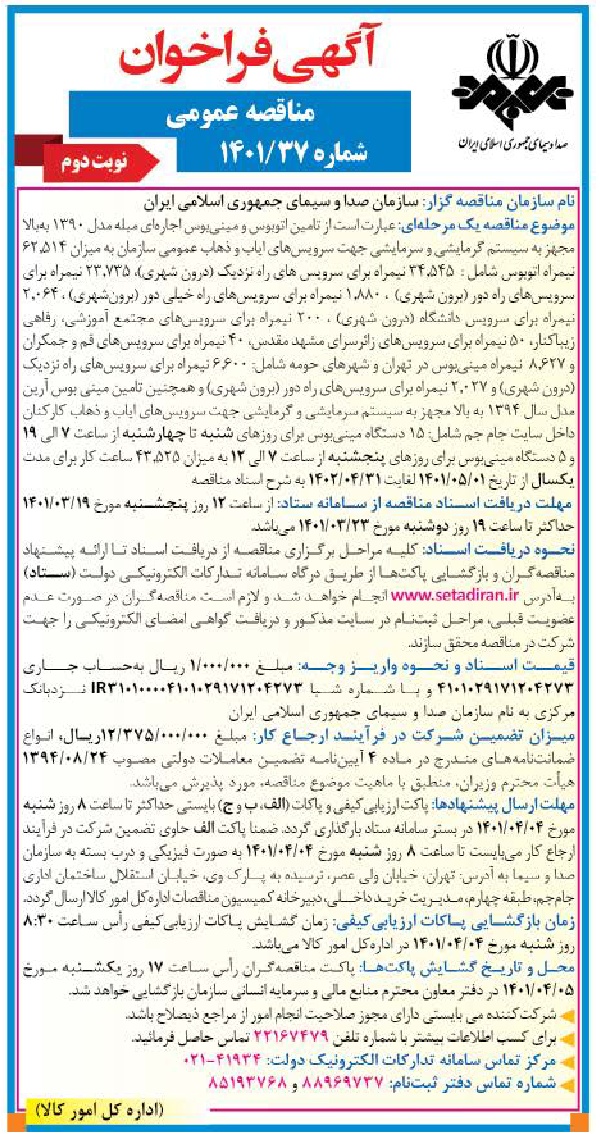 آگهی فراخوان
مناقصه عمومی
شماره ۱۴۰۱/۳۷
نوبت دوم
صدا و سیمای جمهوری اسلامی ایران
نام سازمان مناقصه گزار: سازمان صدا و سیمای جمهوری اسلامی ایران
موضوع مناقصه یک مرحله‌ای: عبارت است از تامین اتوبوس و مینی‌بوس اجاره‌ای مبله مدل ۱۳۹۰ به‌بالا
مجهز به سیستم گرمایشی و سرمایشی جهت سرویس‌های ایاب و ذهاب عمومی سازمان به میزان ۶۲,۵۱۴
نیمراه اتوبوس شامل : ۳۴,۵۴۵ نیمراه برای سرویس های راه نزدیک (درون شهری)، ۲۳,۷۳۵ نیمراه برای
سرویس‌های راه دور (برون شهری) ، ۱,۸۸۰ نیمراه برای سرویس‌های راه خیلی دور (برون‌شهری) ، ۲,۰۶۴
نیمراه برای سرویس دانشگاه (درون شهری) ، ۲۰۰ نیمراه برای سرویس‌های مجتمع آموزشی، رفاهی
زیباکنار، ۵۰ نیمراه برای سرویس‌های زائرسرای مشهد مقدس، ۴۰ نیمراه برای سرویس‌های قم و جمکران
و ۸,۶۲۷ نیمراه مینی‌بوس در تهران و شهرهای حومه شامل: ۶,۶۰۰ نیمراه برای سرویس‌های راه نزدیک
(درون شهری) و ۲,۰۲۷ نیمراه برای سرویس‌های راه دور (برون شهری) و همچنین تامین مینی بوس آرین
مدل سال ۱۳۹۴ به بالا مجهز به سیستم سرمایشی و گرمایشی جهت سرویس‌های ایاب و ذهاب کارکنان
داخل سایت جام جم شامل: ۱۵ دستگاه مینی‌بوس برای روزهای شنبه تا چهارشنبه از ساعت ۷ الی ۱۹
و ۵ دستگاه مینی‌بوس برای روزهای پنجشنبه از ساعت ۷ الی ۱۲ به میزان ۴۳,۵۲۵ ساعت کار برای مدت
یکسال از تاریخ ۱۴۰۱/۰۵/۰۱ لغایت ۱۴۰۲/۰۴/۳۱ به شرح اسناد مناقصه
مهلت دریافت اسناد مناقصه از سامانه ستاد: از ساعت ۱۲ روز پنجشنبه مورخ ۱۴۰۱/۰۳/۱۹
حداکثر تا ساعت ۱۹ روز دوشنبه مورخ ۱۴۰۱/۰۳/۲۳ می‌باشد.
نحوه دریافت اسناد: کلیه مراحل برگزاری مناقصه از دریافت اسناد تا ارائه پیشنهاد
مناقصه‌گران و بازگشایی پاکت‌ها از طریق درگاه سامانه تدارکات الکترونیکی دولت (ستاد)
به‌آدرس www.setadiran.ir انجام خواهد شد و لازم است مناقصه‌گران در صورت عدم
عضویت قبلی، مراحل ثبت‌نام در سایت مذکور و دریافت گواهی امضای الکترونیکی را جهت
شرکت در مناقصه محقق سازند.
قیمت اسناد و نحوه واریز وجه: مبلغ ۱/۰۰۰/۰۰۰ ریال به‌حساب جاری
۴۱۰۱۰۲۹۱۷۱۲۰۴۲۷۳ و با شماره شبا IR۳۱۰۱۰۰۰۰۴۱۰۱۰۲۹۱۷۱۲۰۴۲۷۳ نزدبانک
مرکزی به نام سازمان صدا و سیمای جمهوری اسلامی ایران
میزان تضمین شرکت در فرآیند ارجاع کار: مبلغ ۱۲/۳۷۵/۰۰۰/۰۰۰ریال، انواع
ضمانت‌نامه‌های مندرج در ماده ۴ آیین‌نامه تضمین معاملات دولتی مصوب ۱۳۹۴/۰۸/۲۴
هیأت محترم وزیران، منطبق با ماهیت موضوع مناقصه، مورد پذیرش می‌باشد.
مهلت ارسال پیشنهادها: پاکت ارزیابی‌کیفی و پاکات (الف، ب و ج) بایستی حداکثر تا ساعت ۸ روز شنبه
مورخ ۱۴۰۱/۰۴/۰۴ در بستر سامانه ستاد بارگذاری گردد. ضمنا پاکت الف حاوی تضمین شرکت در فرآیند
ارجاع کار می‌بایست تا ساعت ۸ روز شنبه مورخ ۱۴۰۱/۰۴/۰۴ به صورت فیزیکی و درب بسته به سازمان
صدا و سیما به آدرس: تهران، خیابان ولی عصر، نرسیده به پارک وی، خیابان استقلال ساختمان اداری
جام‌جم، طبقه چهارم، مدیریت خرید داخلی، دبیرخانه کمیسیون مناقصات اداره‌کل امور کالا ارسال گردد.
زمان بازگشایی پاکات ارزیابی‌کیفی: زمان گشایش پاکات ارزیابی‌کیفی رأس ساعت ۸:۳۰
روز شنبه مورخ ۱۴۰۱/۰۴/۰۴ در اداره‌کل امور کالا می‌باشد.
محل و تاریخ گشایش پاکت‌ها: پاکت مناقصه‌گران رأس ساعت ۱۷ روز یکشنبه مورخ
۱۴۰۱/۰۴/۰۵ در دفتر معاون محترم منابع مالی و سرمایه انسانی سازمان بازگشایی خواهد شد.
شرکت‌کننده می بایستی دارای مجوز صلاحیت انجام امور از مراجع ذیصلاح باشد.
برای کسب اطلاعات بیشتر با شماره تلفن ۲۲۱۶۷۴۷۹ تماس حاصل فرمائید.
مرکز تماس سامانه تدارکات الکترونیک دولت: ۴۱۹۳۴-۰۲۱
شماره تماس دفتر ثبت‌نام: ۸۸۹۶۹۷۳۷ و ۸۵۱۹۳۷۶۸
(اداره کل امور کالا)